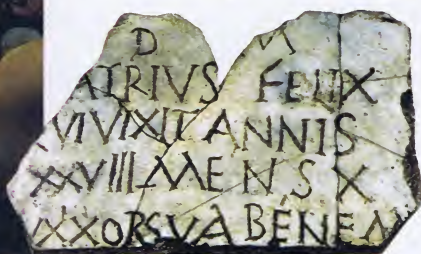 D M
ATRIVS FELIX
VIVIXIT ANNIS
XXVIII MENS X
VXXORSVA BENE M